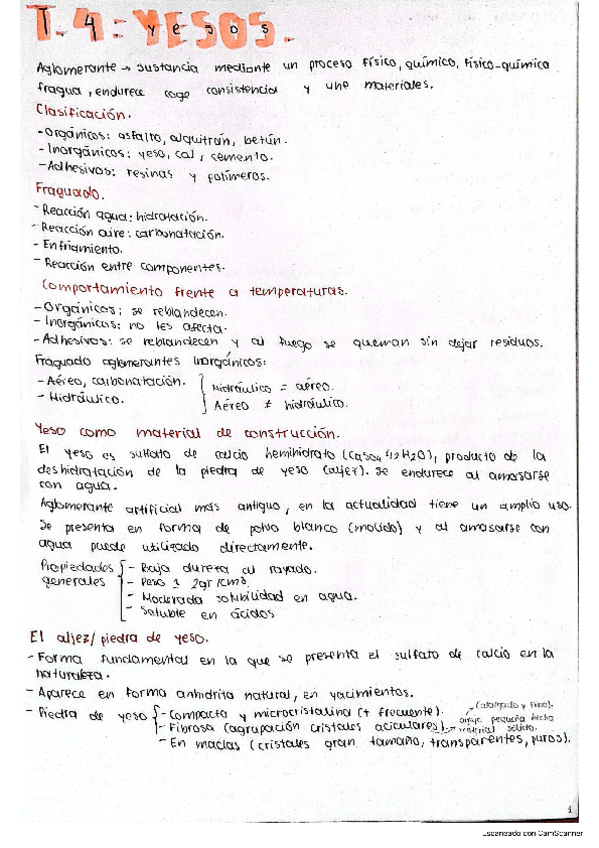 T.4: YESOS.
yesos
Aglomerante → sustancia mediante un proceso físico, químico, físico-químico
fragua, endurece coge consistencia y une materiales.
Clasificación.
- Orgánicos: asfalto, alquitrán, betún.
- Inorgánicos: yeso, cal, cemento.
- Adhesivos: resinas y polímeros.
Fraguado.
- Reacción agua: hidratación.
- Reacción aire: carbonatación.
- Enfriamiento.
- Reacción entre componentes.
Comportamiento frente a temperaturas.
- Orgánicos: se reblandecen.
- Inorgánicos: no les afecta.
- Adhesivos: se reblandecen y al fuego se queman sin dejar residuos.
Fraguado aglomerantes inorgánicos:
- Aéreo, carbonatación. { Hidráulico = aéreo.
- Hidráulico. Aéreo ≠ hidráulico.
Yeso como material de construcción.
El yeso es sulfato de calcio hemihidrato (CaSO4 1/2H2O), producto de la
deshidratación de la piedra de yeso (aljez). Se endurece al amasarse
con agua.
Aglomerante artificial más antiguo, en la actualidad tiene un amplio uso.
Se presenta en forma de polvo blanco (molido) y al amasarse con
agua puede utilizado directamente.
Propiedades { - Baja dureza al rayado.
generales - Peso 2gr/cm3.
- Moderada solubilidad en agua.
- Soluble en ácidos
El aljez/piedra de yeso.
- Forma fundamental en la que se presenta el sulfato de calcio en la
naturaleza.
- Aparece en forma anhidrita natural, en yacimientos.
- Piedra de yeso { - Compacta y microcristalina (+ frecuente).
- Fibrosa (agrupación cristales aciculares) → (alargado y fino).
pequeña hecha
material sólido.
- En maclas (cristales gran tamaño, transparentes, puros).
1
Escaneado con CamScanner